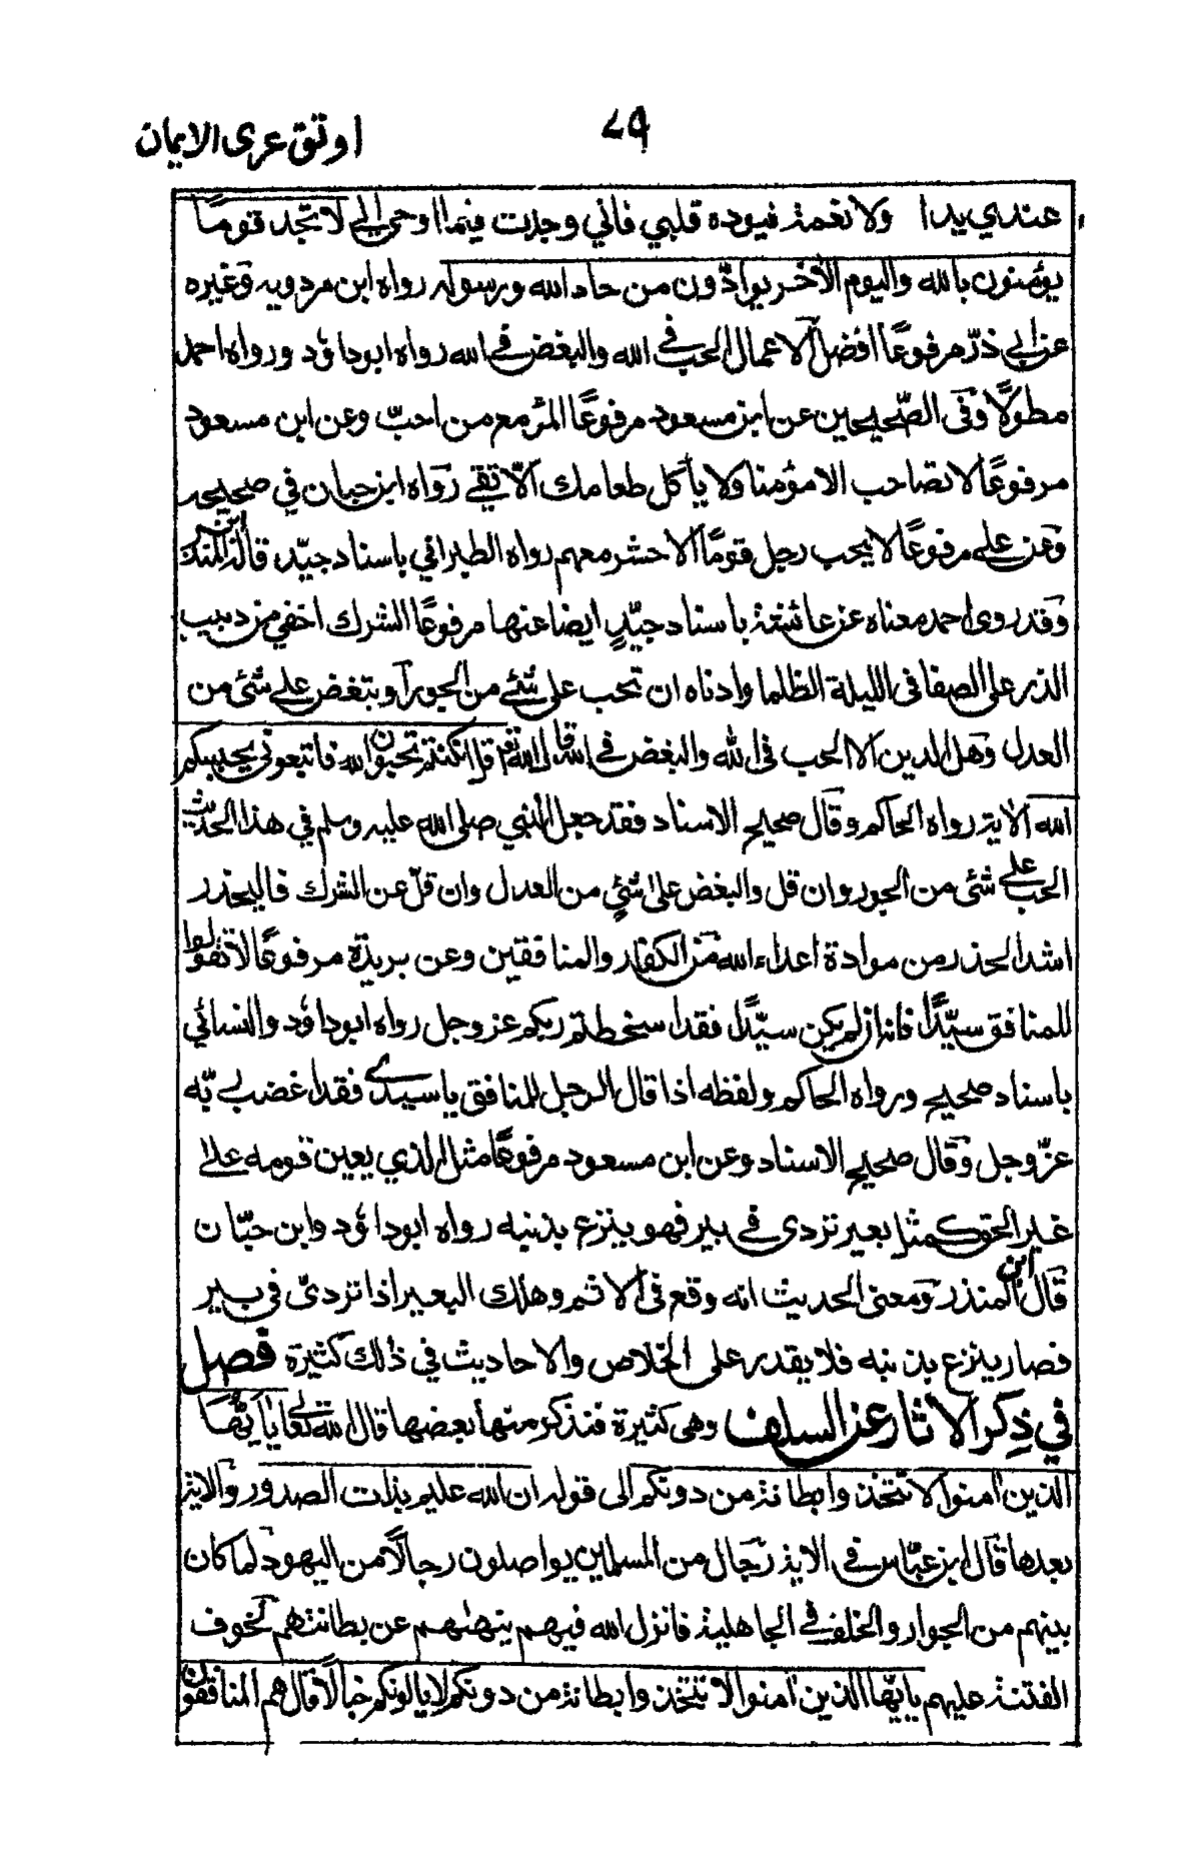 ٧٩
اوثق عرى الايمان
عندي يدا ولا نعمة فيوده قلبي فاني وجدت فيما اوحى الي لا تجد قوما
يؤمنون بالله واليوم الآخر يوادّون من حاد الله ورسوله رواه ابن مردويه وغيره
عن ابي ذرّ مرفوعًا افضل الاعمال الحب في الله والبغض في الله رواه ابوداؤد ورواه احمد
مطولًا وفى الصّحيحين عن ابن مسعود مرفوعًا المرٔ مع من احبّ وعن ابن مسعود
مرفوعًا لا تصاحب الا مؤمنا ولا يأكل طعامك الّا تقي رواه ابن حبان في صحيحه
وعن علي مرفوعًا لا يحب رجل قومًا الا حشر معهم رواه الطبراني باسناد جيّد قاله ابن المنذر
وقد روى احمد معناه عن عائشة باسناد جيّدٍ ايضا عنها مرفوعًا الشرك اخفي من دبيب
الذر على الصفا فى الليلة الظلما وادناه ان تحب على شئ من الجور او تبغض على شئ من
العدل وهل الدين الا الحب فى الله والبغض في الله قال الله تعم قل ان كنتم تحبون الله فاتبعوني يحببكم
الله الاية رواه الحاكم وقال صحيح الاسناد فقد جعل النبي صلى الله عليه وسلم في هذا الحديث
الحب على شئ من الجور وان قل والبغض على شئ من العدل وان قلّ عن الشرك فاليحذر
اشد الحذر من موادة اعداء الله من الكفار والمنافقين وعن بريدة مرفوعًا لا تقولوا
للمنافق سيّدًا فانه ان لم يكن سيّدًا فقد اسخطتم ربكم عز وجل رواه ابوداؤد والنسائي
باسناد صحيح ورواه الحاكم ولفظه اذا قال الرجل للمنافق يا سيدي فقد اغضب ربّه
عزّ وجل وقال صحيح الاسناد وعن ابن مسعود مرفوعًا مثل الذي يعين قومه على
غير الحق كمثل بعير تردى في بير فهو ينزع بذنبه رواه ابوداؤد وابن حبّان
قال ابن المنذر ومعنى الحديث انه وقع فى الاثم وهلك البعير اذا تردىّ في بير
فصار ينزع بذنبه فلا يقدر على الخلاص والاحاديث في ذلك كثيرة فصل
في ذِكر الآثار عن السلف وهى كثيرة فنذكر منها بعضها قال الله تعالى يا ايّها
الذين اٰمنوا لا تتخذوا بطانة من دونكم الى قوله ان الله عليم بذات الصدور والاية
بعدها قال ابن عبّاس في الاية رجال من المسلمين يواصلون رجالًا من اليهود لما كان
بينهم من الجوار والحلف في الجاهلية فانزل الله فيهم ينهٰهم عن بطانتهم لخوف
الفتنة عليهم يا ايّها الذين اٰمنوا لا تتخذوا بطانة من دونكم لا يالونكم خبالًا قال هم المنافقون